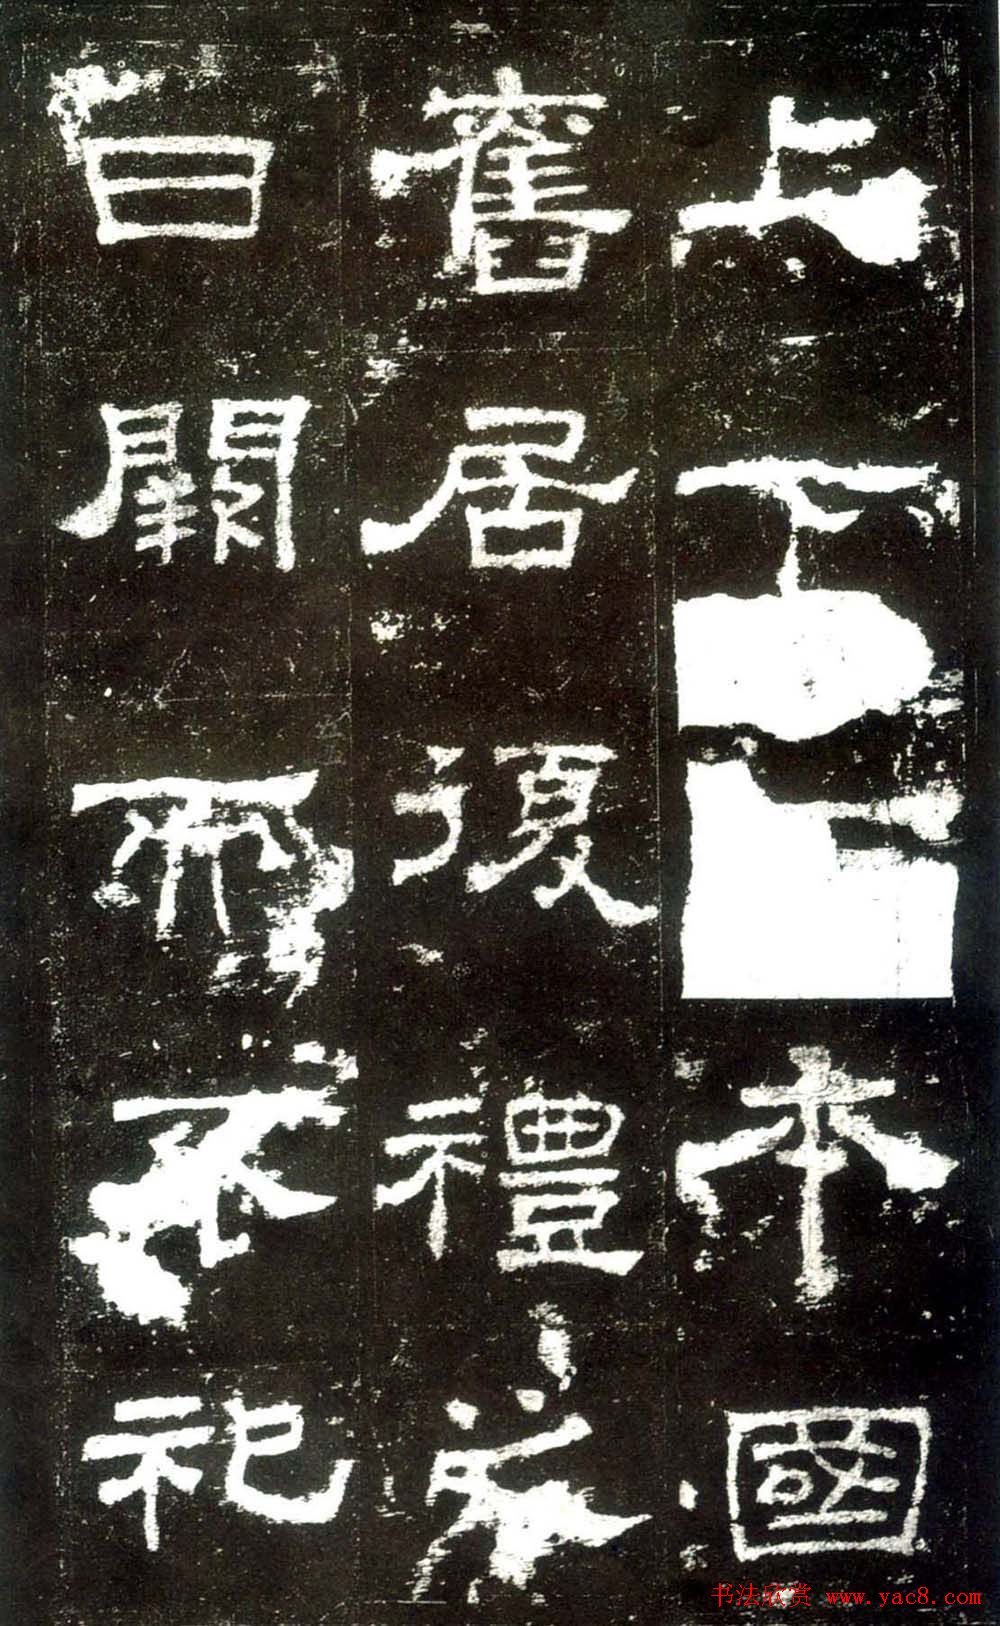 上下本國
舊居復禮之
日闕而不祀
书法欣赏 www.yac8.com